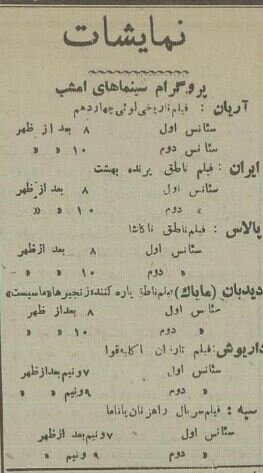 نمایشات
پروگرام سینماهای امشب
آریان : فیلم تاریخی لوئی چهاردهم
سئانس اول ۸ بعد از ظهر
سئانس دوم ۱۰ « «
ایران : فیلم ناطق پرنده بهشت
سئانس اول ۸ بعد از ظهر
« دوم ۱۰ « «
پالاس : فیلم ناطق
سئانس اول ۸ بعد ازظهر
« دوم ۱۰ « «
دیدبان (مایاک) فیلم ناطق پاره کننده زنجیرها «ماسیست»
سئانس اول ۸ بعد از ظهر
« دوم ۱۰ « «
داریوش : فیلم تارزان
سئانس اول ۷ونیم بعدازظهر
« دوم ۹ونیم « «
سپه : فیلم سریال راهزنان پاناما
سئانس اول ۷ونیم بعد ازظهر
« دوم ۹ ونیم « «